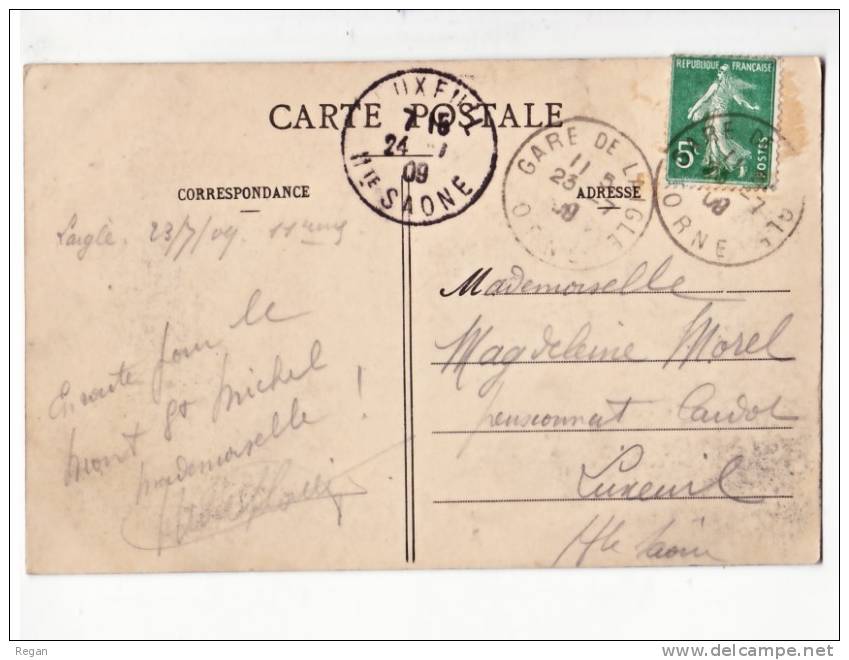 CARTE POSTALE
CORRESPONDANCE
ADRESSE
REPUBLIQUE FRANÇAISE
5c
POSTES
LUXEUIL
7 15
24 - 7
09
Hte SAONE
GARE DE LAIGLE
11
23 - 7
09
ORNE
GARE DE LAIGLE
-7
09
ORNE
Laigle. 23/7/09 11
En route pour le
mont St Michel
mademoiselle !
Mademoiselle
Magdeleine Morel
pensionnat Cardot
Luxeuil
Hte Saône
Regan
www.delcampe.net